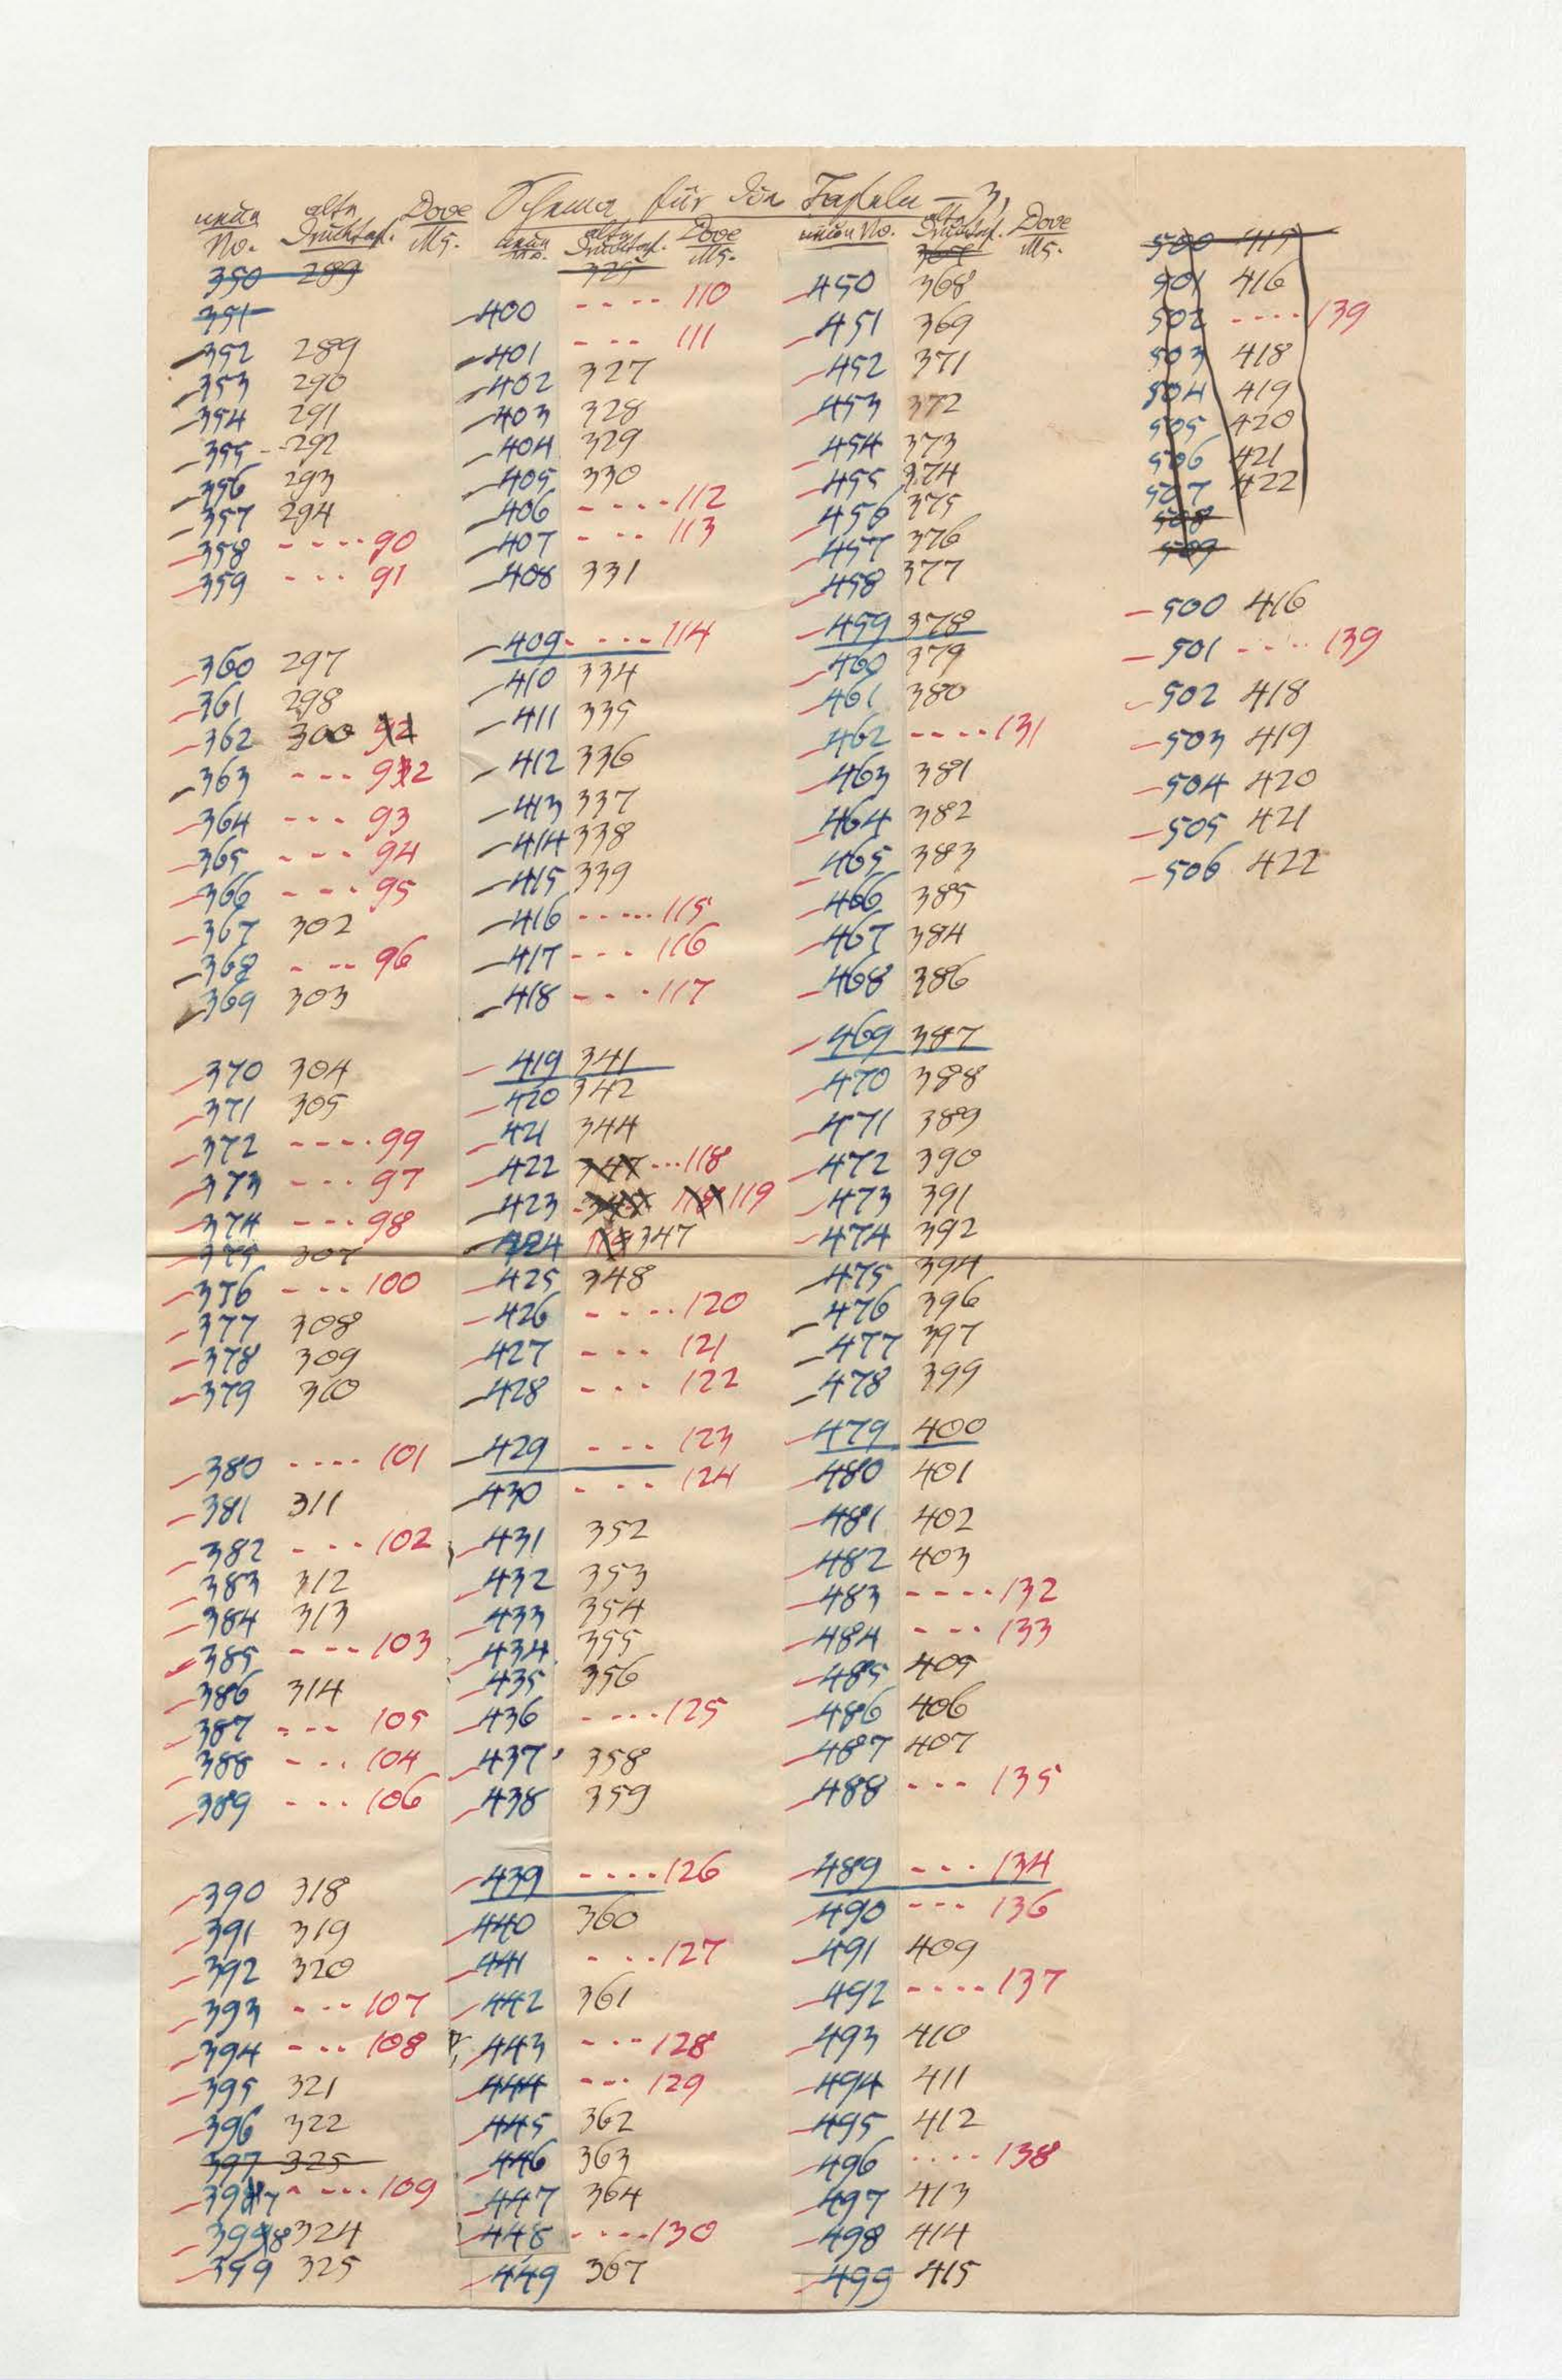 Schema für die Tafeln — 3,
neue No. alte Drucktaf. Dove Ms.
350 289
351
352 289
353 290
354 291
355 - 292
356 293
357 294
358 - - - - 90
359 - - - 91
360 297
361 298
362 300 92
363 - - - 92
364 - - - 93
365 - - - 94
366 - - - 95
367 302
368 - - - 96
369 303
370 304
371 305
372 - - - - 99
373 - - - 97
374 - - - 98
375 307
376 - - - 100
377 308
378 309
379 310
380 - - - - 101
381 311
382 - - - 102
383 312
384 313
385 - - - 103
386 314
387 - - - 105
388 - - - 104
389 - - - 106
390 318
391 319
392 320
393 - - - 107
394 - - - 108
395 321
396 322
397 325
397 - - - - 109
398 324
399 325
neue No. alte Drucktaf. Dove Ms.
325
400 - - - - 110
401 - - - 111
402 327
403 328
404 329
405 330
406 - - - - 112
407 - - - 113
408 331
409 - - - - 114
410 334
411 335
412 336
413 337
414 338
415 339
416 - - - - - 115
417 - - - 116
418 - - - 117
419 341
420 342
421 344
422 347 - - - 118
423 118 119
424 347
425 348
426 - - - - 120
427 - - - 121
428 - - - 122
429 - - - 123
430 - - - 124
431 352
432 353
433 354
434 355
435 356
436 - - - - 125
437 358
438 359
439 - - - - 126
440 360
441 - - - 127
442 361
443 - - - 128
444 - - - 129
445 362
446 363
447 364
448 - - - - 130
449 367
neue No. alte Drucktaf. Dove Ms.
450 368
451 369
452 371
453 372
454 373
455 374
456 375
457 376
458 377
459 378
460 379
461 380
462 - - - - 131
463 381
464 382
465 383
466 385
467 384
468 386
469 387
470 388
471 389
472 390
473 391
474 392
475 394
476 396
477 397
478 399
479 400
480 401
481 402
482 403
483 - - - - 132
484 - - - 133
485 405
486 406
487 407
488 - - - 135
489 - - - 134
490 - - - 136
491 409
492 - - - - 137
493 410
494 411
495 412
496 - - - - 138
497 413
498 414
499 415
500 415
501 416
502 - - - - 139
503 418
504 419
505 420
506 421
507 422
508
509
500 416
501 - - - - 139
502 418
503 419
504 420
505 421
506 422